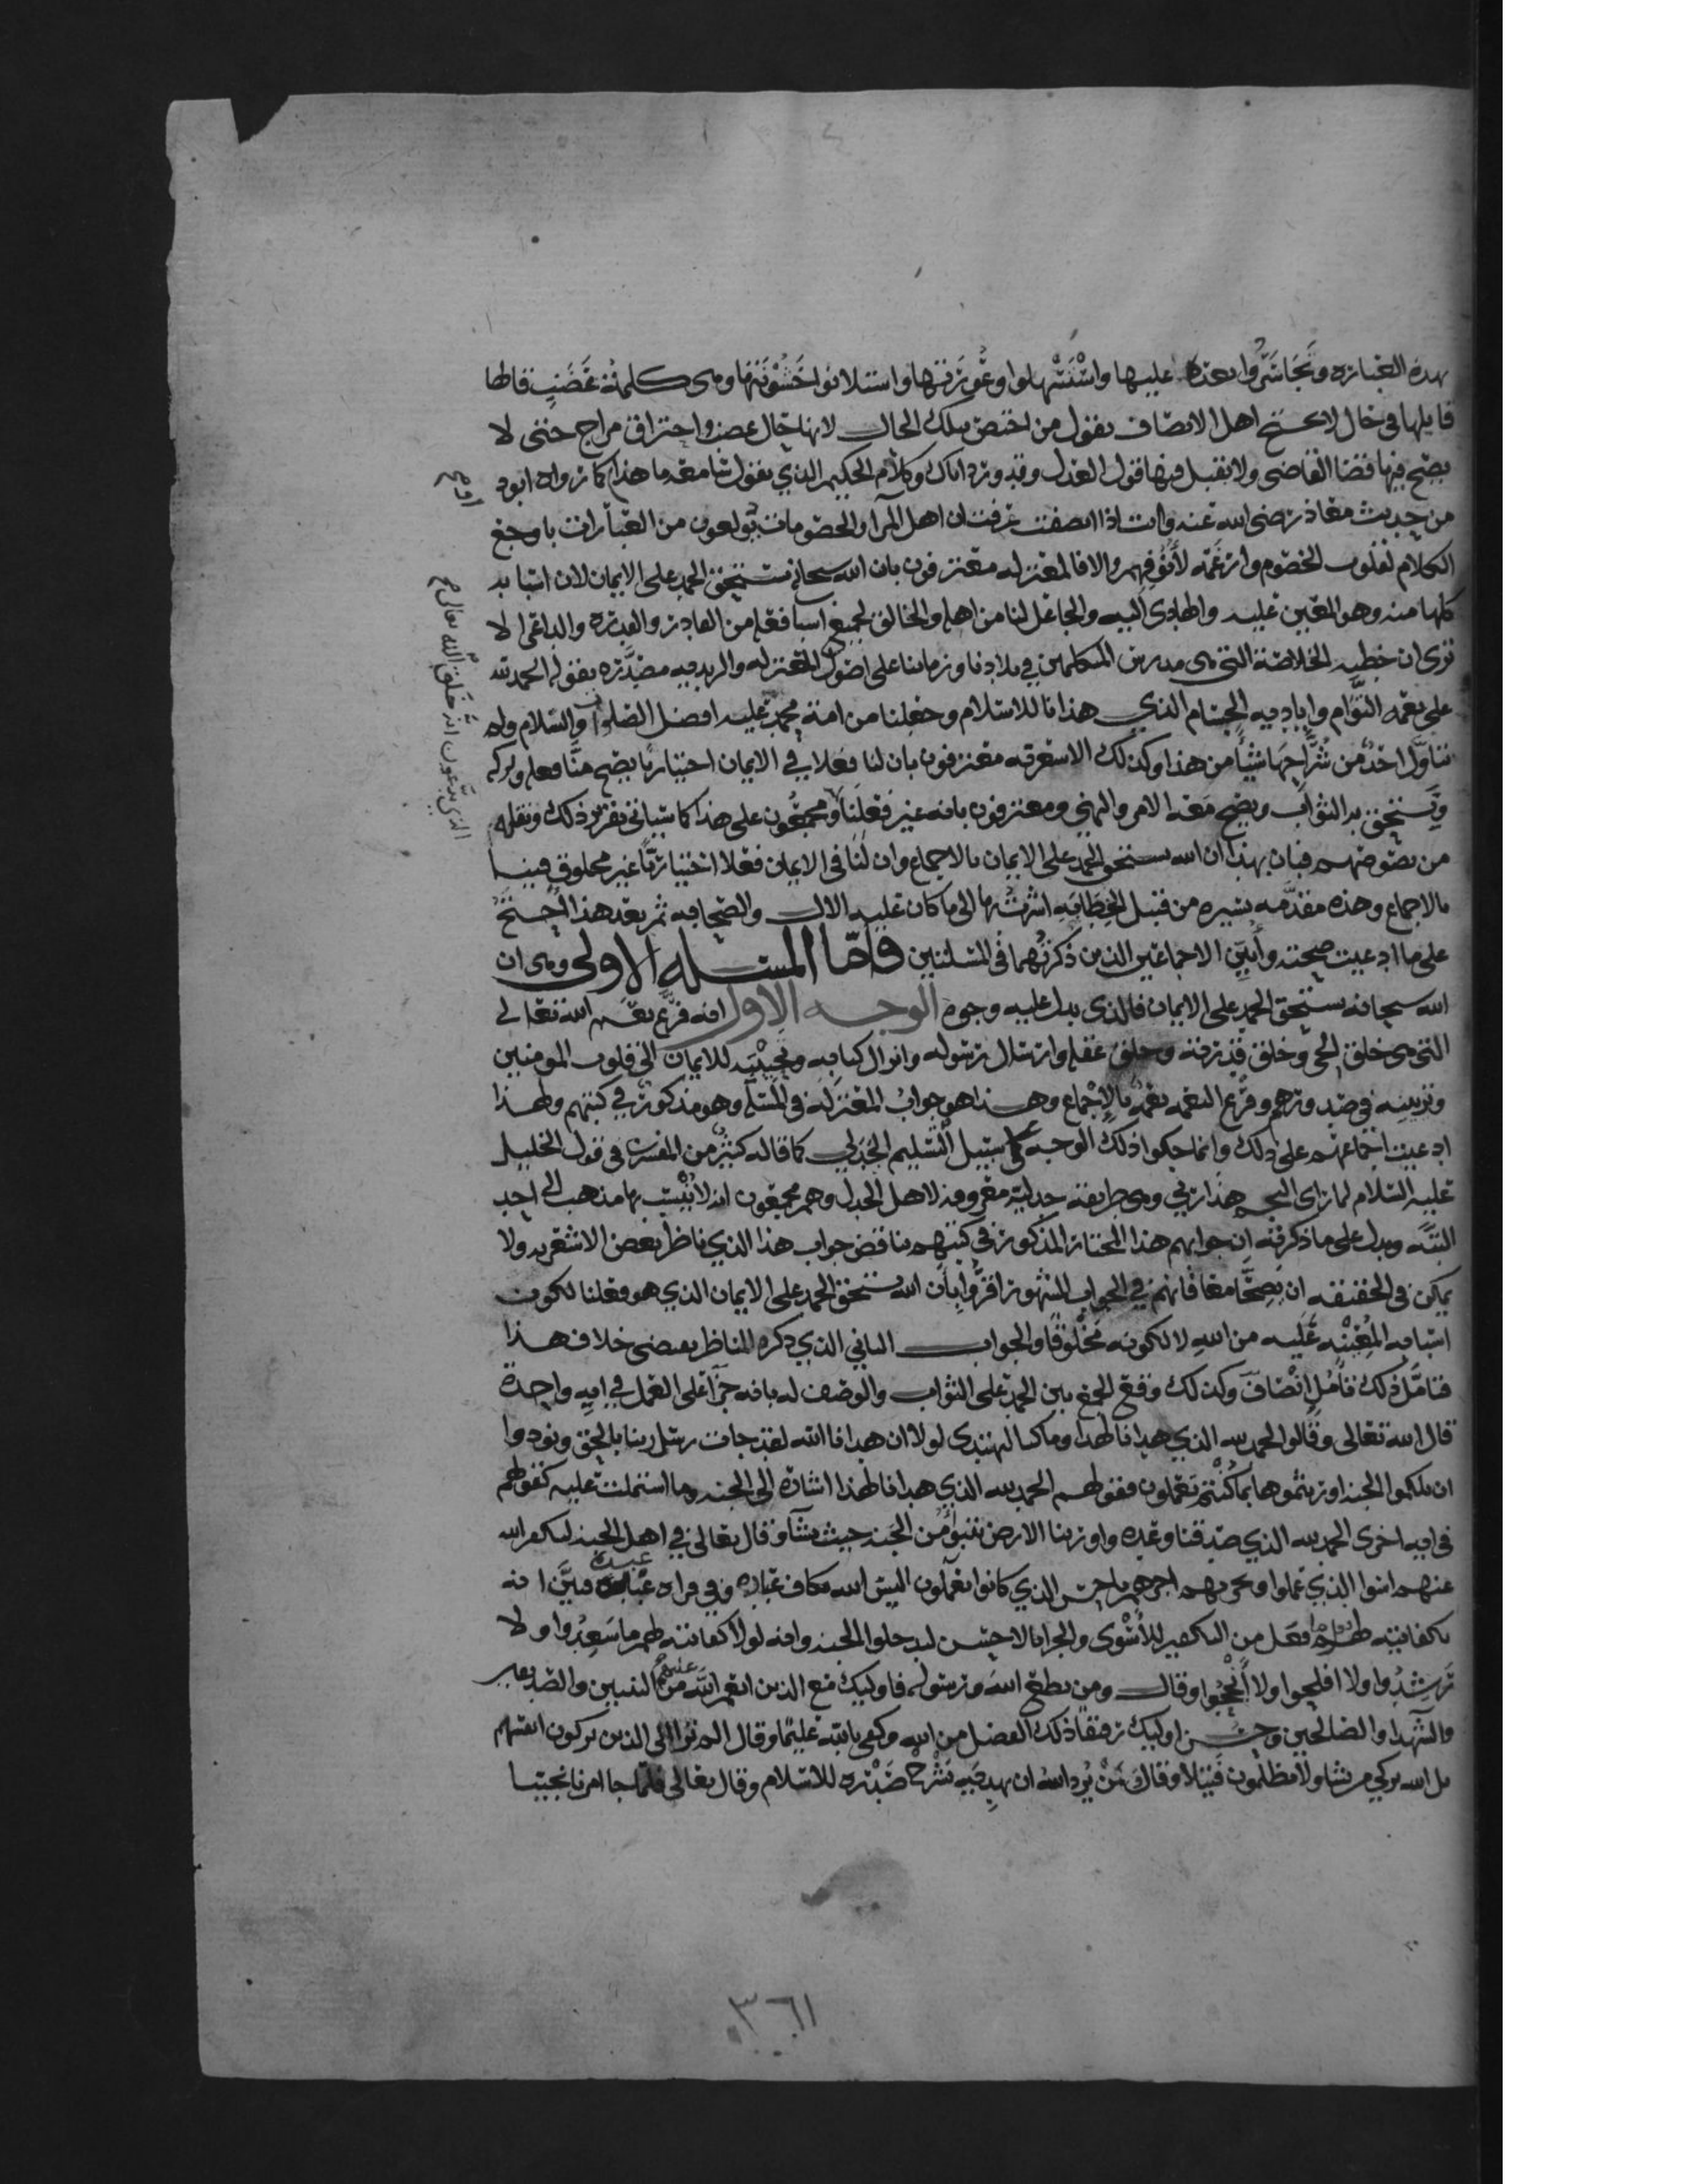 بهذه العبارة وتجاسروا بعده عليها واستسهلوا وعورتها واستلانوا خشونتها وهي كلمة غضب قالها
قايلها في حال لا يحتج اهل الانصاف بقول من اختص بتلك الحال لانها حال غضب واحتراق مزاج حتى لا
يصح فيها قضا القاضي ولا يقبل فيها قول العدل وقد ورد اياك وكلام الحكيم الذي يقول شامعه ما هذا كما رواه ابو د
من حديث معاذ رضي الله عنه وانت اذا انصفت عرفت ان اهل المرا والخصومات يولعون من العبارات باوجع
الكلام لقلوب الخصوم وارغمه لأنوفهم والا فالمعتزله معترفون بان الله سبحانه مستحق الحمد على الايمان لان اسبابه
كلها منه وهو المعين عليه والهادي اليه والجاعل لنا من اهله والخالق لجميع اسبابه فعله من القادر والقدره والداعي الا
ترى ان خطبه الخلاصة التي هي مدرس المتكلمين في بلادنا وزماننا على اصول المعتزله والزيديه مصدره بقوله الحمد لله
على نعمه التؤام واياديه الجسام الذي هدانا للاسلام وجعلنا من امة محمد عليه افضل الصلوات والسلام ولم
يتاول احد من شراحها شيئا من هذا وكذلك الاشعريه معترفون بان لنا فعلا في الايمان اختياريا يصح منا فعله وتركه
ونستحق به الثواب ويصح معه الامر والنهي ومعترفون بانه غير فعلنا ومجمعون على هذا كما سياتي تقرير ذلك ونقله
من نصوصهم فبان بهذا ان الله يستحق الحمد على الايمان بالاجماع وان لنا في الايمان فعلا اختياريا غير مخلوق فينا
بالاجماع وهذه مقدمه يسيره من قبيل الخطابه اشرت بها الى ما كان عليه الال والصحابه ثم بعد هذا احتج
على ما ادعيت صحته وأبين الاجماعين الذين ذكرتهما في المسلتين فاما المسله الاولى وهي ان
الله سبحانه يستحق الحمد على الايمان فالذي يدل عليه وجوه الوجه الاول انه فرع نعم الله تعالى
التي هي خلق الحي وخلق قدرته وخلق عقله وارسال رسوله وانزال كتابه وتحبيبه للايمان الى قلوب المومنين
وتزيينه في صدورهم وفرع النعمه نعمه بالاجماع وهذا هو جواب المعتزله في المسله وهو مذكور في كتبهم ولهذا
ادعيت اجماعهم على ذلك وانما حكوا ذلك الوجه على سبيل التسليم الجدلي كما قاله كثير من المفسرين في قول الخليل
عليه السلام لما راى النجم هذا ربي وهي طريقة جدليه معروفه لاهل الجدل وهم مجمعون انه لا يثبت بها مذهب الى احد
البته ويدل على ما ذكرته ان جوابهم هذا المختار المذكور في كتبهم يناقض جواب هذا الذي ناظر بعض الاشعريه ولا
يمكن في الحقيقه ان يصحا معا فانهم في الجواب المشهور اقروا بان الله يستحق الحمد على الايمان الذي هو فعلنا لكون
اسبابه المعينه عليه من الله لا لكونه مخلوقا والجواب الثاني الذي ذكره المناظر يقتضي خلاف هذا
فتامل ذلك تامل انصاف وكذلك وقع الجمع بين الحمد على الثواب والوصف له بانه جزا على العمل في ايه واحدة
قال الله تعالى وقالوا الحمد لله الذي هدانا لهذا وما كنا لنهتدي لولا ان هدانا الله لقد جات رسل ربنا بالحق ونودوا
ان تلكموا الجنه اورثتموها بما كنتم تعملون فقولهم الحمد لله الذي هدانا لهذا اشارة الى الجنه وما اشتملت عليه كقولهم
في ايه اخرى الحمد لله الذي صدقنا وعده واورثنا الارض نتبوأ من الجنه حيث نشا وقال تعالى في اهل الجنه ليكفر الله
عنهم اسوا الذي عملوا ويجزيهم اجرهم باحسن الذي كانوا يعملون اليس الله بكاف عباده وفي قراه عباده عبده فبين انه
بكفايته لهم افعل من التكفير للأسوى والجزا بالاحسن ليدخلوا الجنه وانه لولا كفايته لهم ما سعدوا ولا
رشدوا ولا افلحوا ولا أنجحوا وقال ومن يطع الله ورسوله فاوليك مع الذين انعم الله عليهم من النبيين والصديقين
والشهدا والصالحين وحسن اوليك رفيقا ذلك الفضل من الله وكفى بالله عليما وقال الم تر الى الذين يزكون انفسهم
بل الله يزكي من يشا ولا يظلمون فتيلا وقال فمن يرد الله ان يهديه يشرح صدره للاسلام وقال تعالى فلما جا امرنا نجينا
اود ع
الذي يدعون انه خلق الله تعالى م
٣٦١